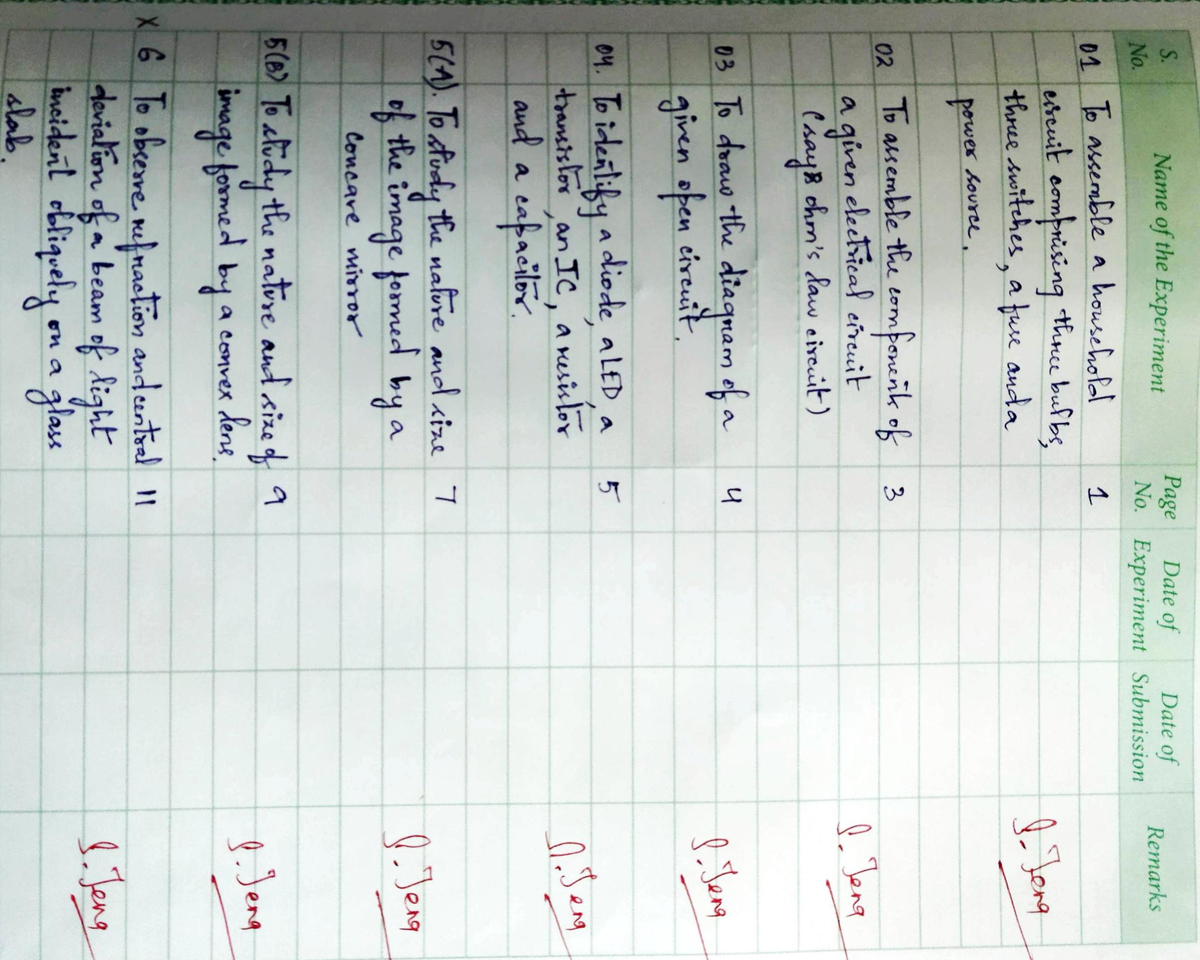 S. No. Name of the Experiment Page No. Date of Experiment Date of Submission Remarks
01 To assemble a household 1
circuit comprising three bulbs,
three switches, a fuse and a S.Jena
power source.
02 To assemble the components of 3
a given electrical circuit S.Jena
(say 8 ohm's law circuit)
03 To draw the diagram of a 4 S.Jena
given open circuit.
04. To identify a diode, a LED, a 5
transistor, an IC, a resistor S.Jena
and a capacitor.
5(A). To study the nature and size 7
of the image formed by a S.Jena
concave mirror
5(B) To study the nature and size of 9
image formed by a convex lens. S.Jena
x 6 To observe refraction and 11
deviation of a beam of light S.Jena
incident obliquely on a glass
slab.